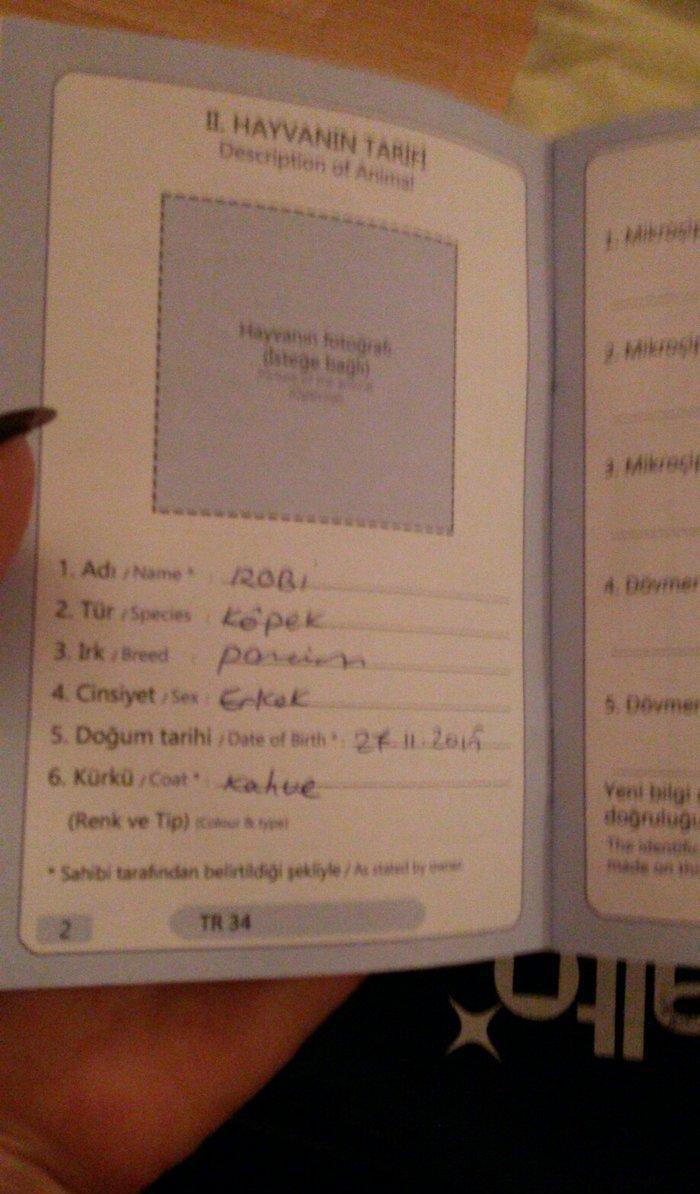 II. HAYVANIN TARİFİ
Description of Animal
Hayvanın fotoğrafı
(İsteğe bağlı)
1. Adı / Name * : ROBİ
2. Tür / Species : Köpek
3. Irk / Breed
4. Cinsiyet / Sex : Erkek
5. Doğum tarihi / Date of Birth * : 27.11.2015
6. Kürkü / Coat * : Kahve
(Renk ve Tip) (Colour & type)
* Sahibi tarafından belirtildiği şekliyle / As stated by owner
2
TR 34
1. Mikroçip
2. Mikroçip
3. Mikroçip
4. Dövmen
5. Dövmen
Yeni bilgi
doğruluğu
The identifi
made on this
alto